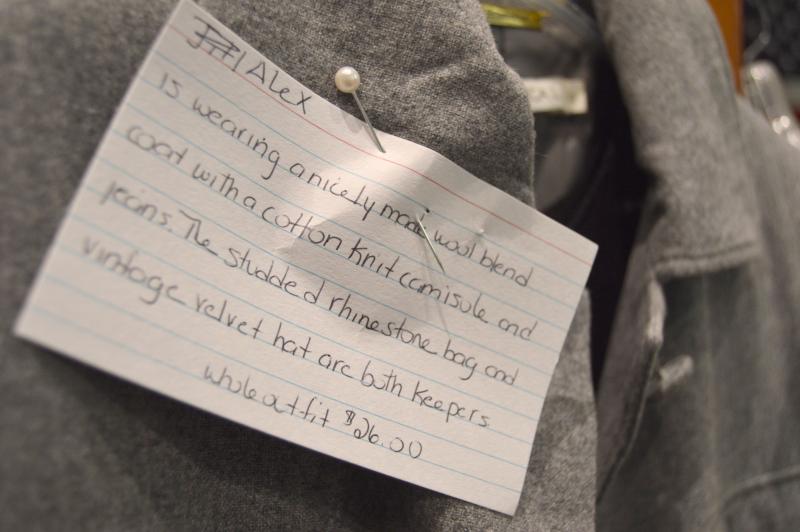 Alex
is wearing a nicely made wool blend
coat with a cotton knit camisole and
jeans. The studded rhinestone bag and
vintage velvet hat are both keepers
whole outfit $26.00